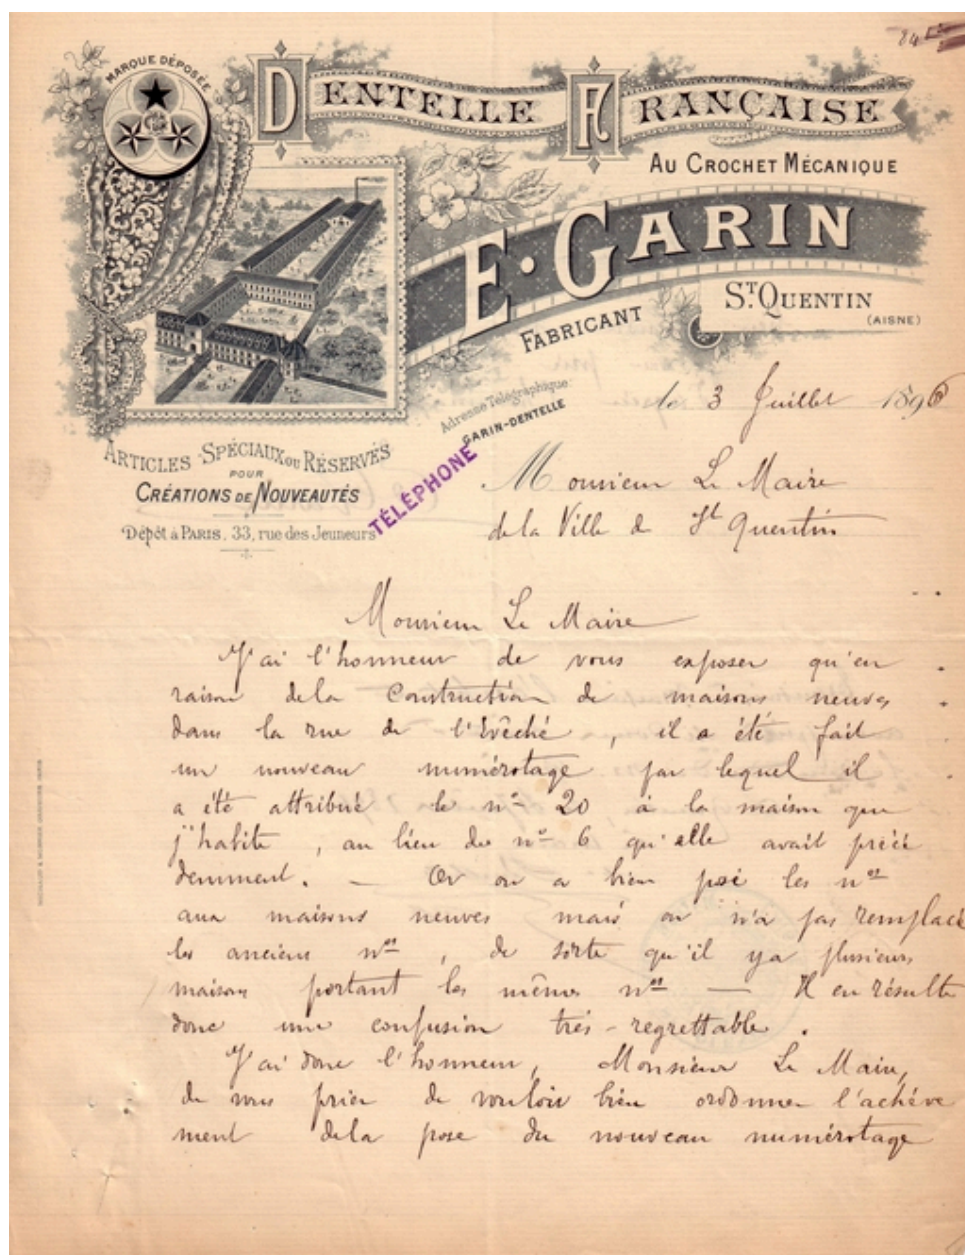 MARQUE DÉPOSÉE
DENTELLE FRANÇAISE
AU CROCHET MÉCANIQUE
E. GARIN
FABRICANT
ST. QUENTIN
(AISNE)
Adresse Télégraphique:
GARIN-DENTELLE
TÉLÉPHONE
ARTICLES SPÉCIAUX OU RÉSERVÉS
POUR
CRÉATIONS DE NOUVEAUTÉS
Dépôt à PARIS, 33, rue des Jeuneurs
le 3 Juillet 1896
Monsieur Le Maire
de la Ville de St Quentin
Monsieur Le Maire
J'ai l'honneur de vous exposer qu'en
raison de la Construction de maisons neuves
dans la rue de l'Evêché, il a été fait
un nouveau numérotage par lequel il
a été attribué le no 20 à la maison que
j'habite, au lieu du no 6 qu'elle avait précé
demment. — Or on a bien posé les nos
aux maisons neuves mais on n'a pas remplacé
les anciens nos, de sorte qu'il y a plusieurs
maisons portant les mêmes nos — Il en résulte
donc une confusion très-regrettable.
J'ai donc l'honneur, Monsieur Le Maire,
de vous prier de vouloir bien ordonner l'achéve
ment de la pose du nouveau numérotage